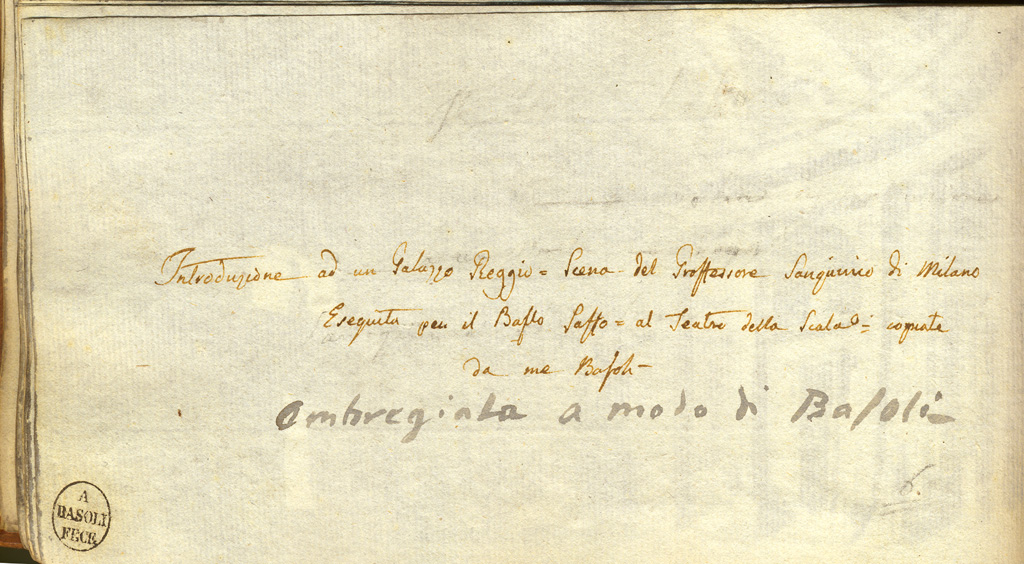 Introduzione ad un Palazzo Reggio = Scena del Proffessore Sanquirico di Milano
Eseguita per il Ballo Saffo = al Teatro della Scala = copiata
da me Basoli -
Ombregiata a modo di Basoli
6.
A
BASOLI
FECE